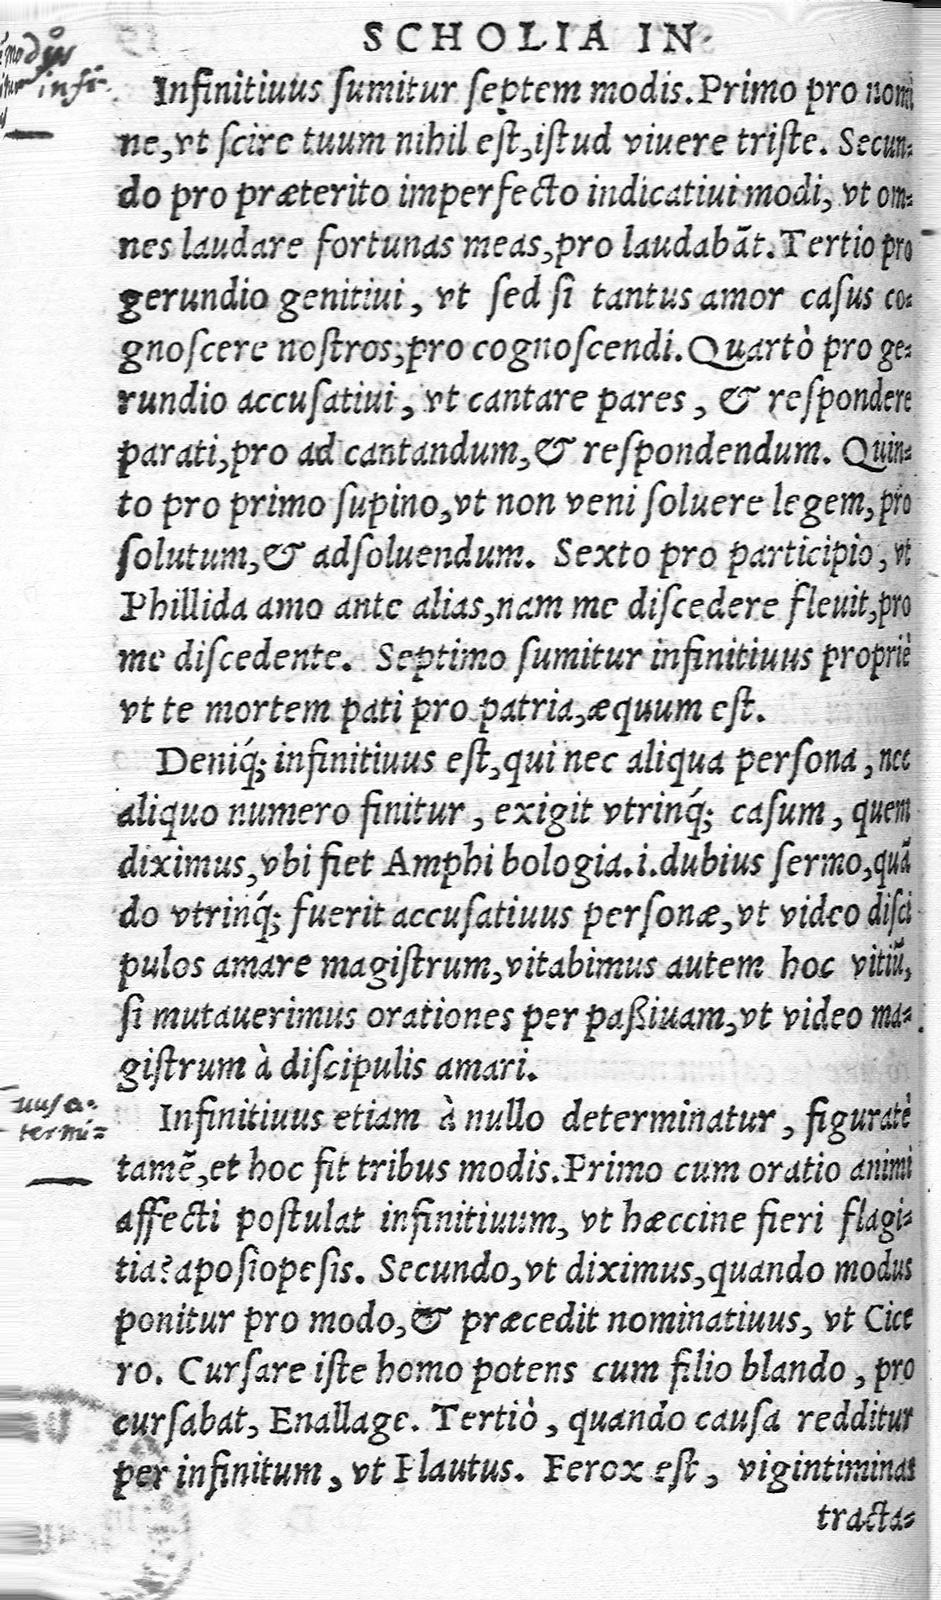 SCHOLIA IN
Infinitiuus ſumitur ſeptem modis. Primo pro nomi
ne, vt ſcire tuum nihil eſt, iſtud viuere triſte. Secun-
do pro præterito imperfecto indicatiui modi, vt om-
nes laudare fortunas meas, pro laudabãt. Tertio pro
gerundio genitiui, vt ſed ſi tantus amor caſus co-
gnoſcere noſtros, pro cognoſcendi. Quartò pro ge-
rundio accuſatiui, vt cantare pares, & reſpondere
parati, pro ad cantandum, & reſpondendum. Quin-
to pro primo ſupino, vt non veni ſoluere legem, pro
ſolutum, & adſoluendum. Sexto pro participio, vt
Phillida amo ante alias, nam me diſcedere fleuit, pro
me diſcedente. Septimo ſumitur infinitiuus propriè
vt te mortem pati pro patria, æquum eſt.
Deniq́; infinitiuus eſt, qui nec aliqua perſona, nec
aliquo numero finitur, exigit vtrinq́; caſum, quem
diximus, vbi fiet Amphibologia. i. dubius ſermo, quã
do vtrinq́; fuerit accuſatiuus perſonæ, vt video diſci
pulos amare magiſtrum, vitabimus autem hoc vitiũ,
ſi mutauerimus orationes per paßiuam, vt video ma-
giſtrum à diſcipulis amari.
Infinitiuus etiam à nullo determinatur, figuratè
tamẽ, et hoc fit tribus modis. Primo cum oratio animi
affecti poſtulat infinitiuum, vt hæccine fieri flagi-
tia? apoſiopeſis. Secundo, vt diximus, quando modus
ponitur pro modo, & præcedit nominatiuus, vt Cice
ro. Curſare iſte homo potens cum filio blando, pro
curſabat, Enallage. Tertiò, quando cauſa redditur
per infinitum, vt Plautus. Ferox eſt, vigintiminas
tracta-